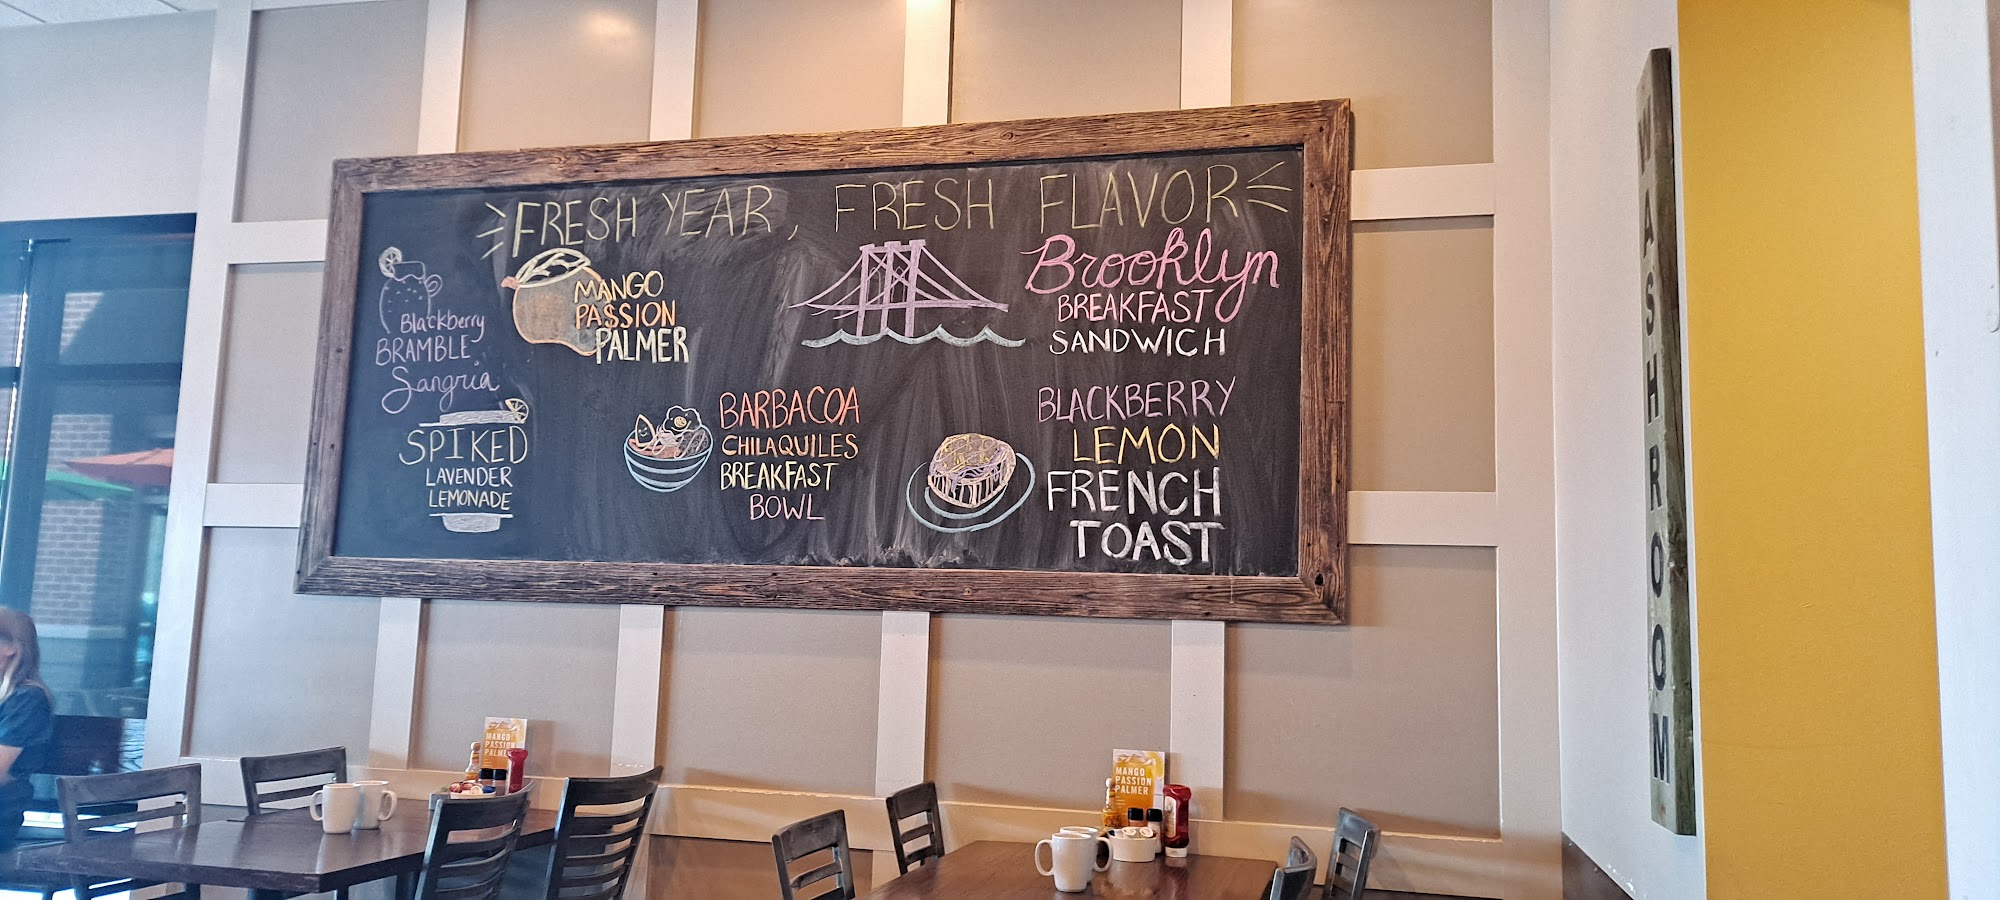 FRESH YEAR, FRESH FLAVOR
Blackberry
BRAMBLE
Sangria
MANGO
PASSION
PALMER
Brooklyn
BREAKFAST
SANDWICH
SPIKED
LAVENDER
LEMONADE
BARBACOA
CHILAQUILES
BREAKFAST
BOWL
BLACKBERRY
LEMON
FRENCH
TOAST
WASHROOM
MANGO
PASSION
PALMER
MANGO
PASSION
PALMER